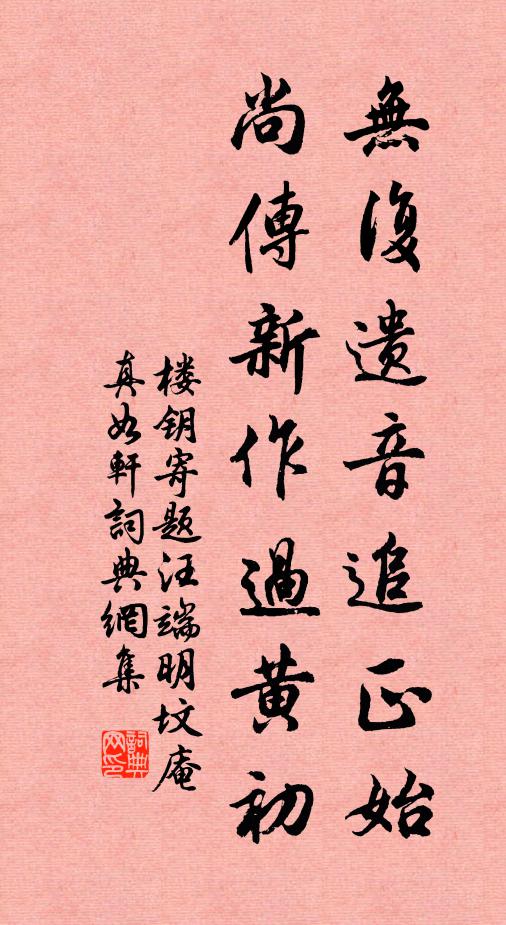 無復遺音追正始
尚傳新作過黄初
楼钥寄题汪端明坟庵
真如軒詞典網集
詞典網印